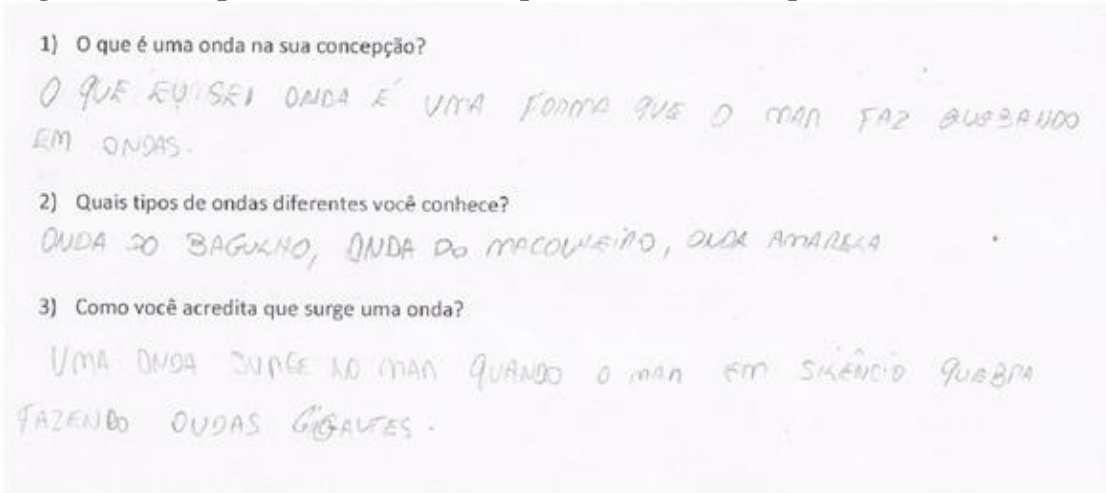 1) O que é uma onda na sua concepção?
O QUE EU SEI ONDA É UMA FORMA QUE O MAR FAZ QUEBRANDO
EM ONDAS.
2) Quais tipos de ondas diferentes você conhece?
ONDA DO BAGULHO, ONDA DO MACONHEIRO, ONDA AMARELA
3) Como você acredita que surge uma onda?
UMA ONDA SURGE NO MAR QUANDO O MAR EM SILÊNCIO QUEBRA
FAZENDO ONDAS GIGANTES.